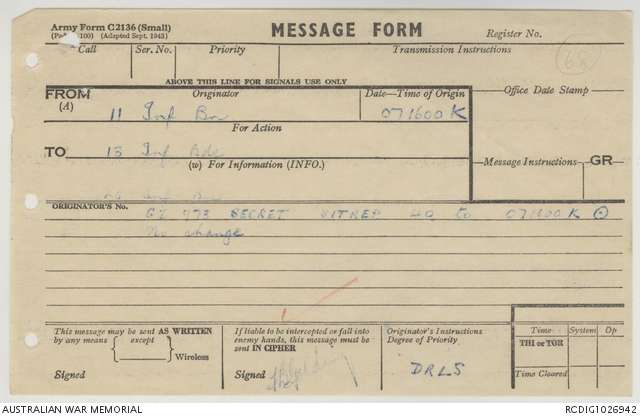 Army Form C2136 (Small)
(Pads of 100) (Adapted Sept. 1943)
MESSAGE FORM
Register No.
Call Ser. No. Priority Transmission Instructions
68
ABOVE THIS LINE FOR SIGNALS USE ONLY
FROM Originator Date—Time of Origin Office Date Stamp—
(A) 11 Inf Bn 071600 K
For Action
TO 13 Inf Bde
(w) For Information (INFO.) Message Instructions GR
Inf Bn
ORIGINATOR'S No. 773 SECRET SITREP 40 to 071600 K
No change
This message may be sent AS WRITTEN
by any means (except
) Wireless
Signed
If liable to be intercepted or fall into
enemy hands, this message must be
sent IN CIPHER
Signed
Originator's Instructions
Degree of Priority
DRLS
Time System Op
THI or TOR
Time Cleared
AUSTRALIAN WAR MEMORIAL RCDIG1026942